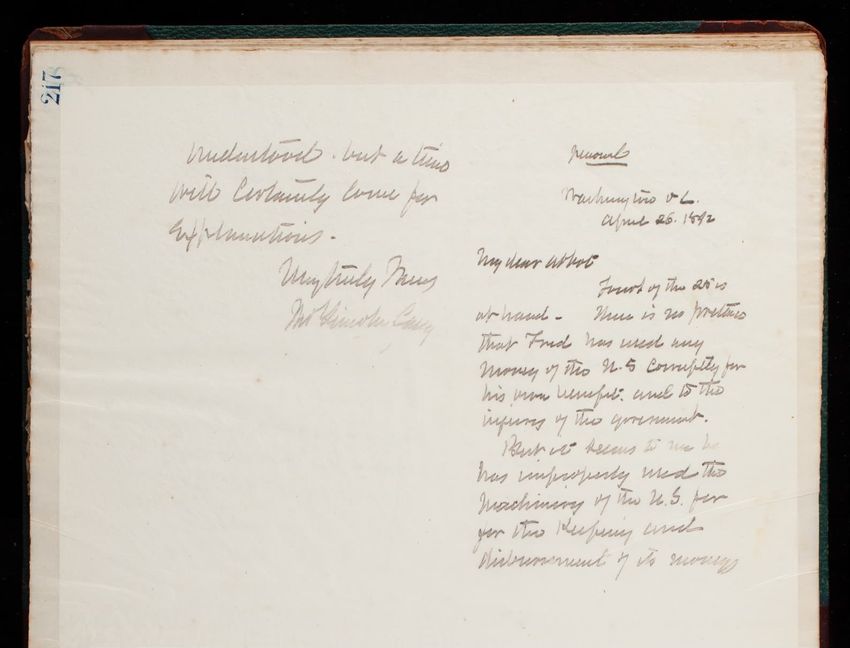 217
understood - but a time
will certainly come for
explanations -
Very truly Yours
Thos Lincoln Casey
Personal
Washington D C.
April 26. 1892
My dear Abbot
Yours of the 25 is
at hand - There is no pretense
that Fred has used any
money of the U.S corruptly for
his own benefit. and to the
injury of the government.
But it seems to me he
has improperly used the
machinery of the U.S. for
for the keeping and
disbursement of its moneys